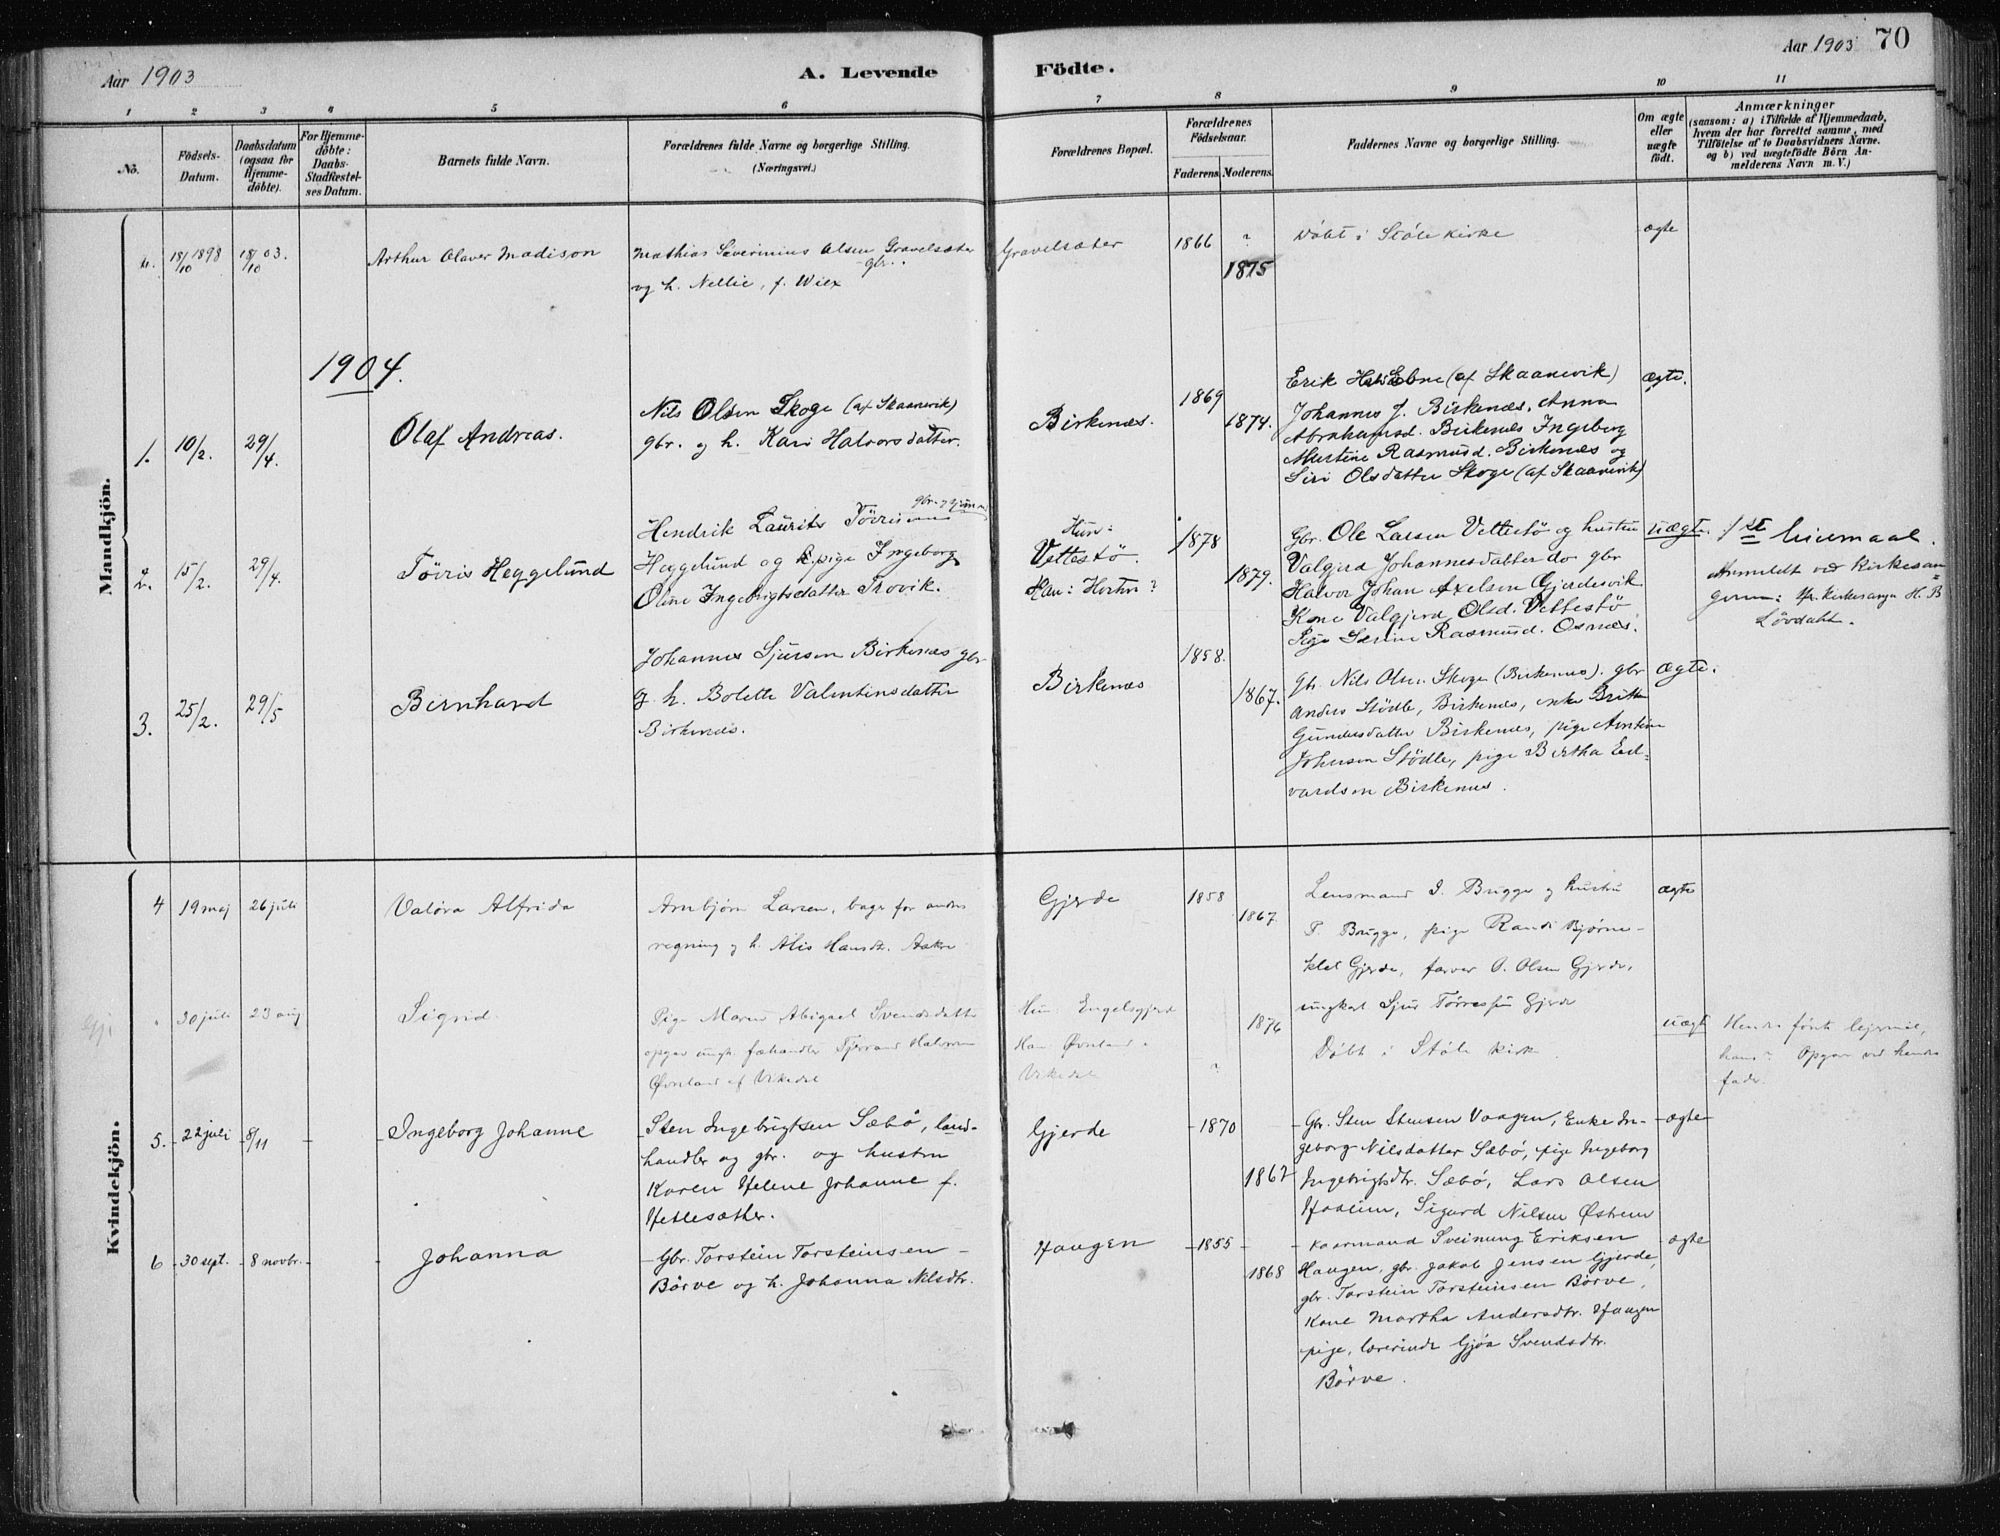 Aar 1903
A. Levende Födte.
Aar 1903
70
1 2 3 4 5 6 7 8 9 10 11
No.
Födsels-
Datum.
Daabsdatum
(ogsaa for
Hjemme-
döbte).
For Hjemme-
döbte:
Daabs-
Stadfæstel-
ses Datum.
Barnets fulde Navn.
Forældrenes fulde Navne og borgerlige Stilling.
(Næringsvei.)
Forældrenes Bopæl.
Forældrenes
Födselsaar.
Faderens. Moderens.
Faddernes Navne og borgerlige Stilling.
Om ægte
eller
uægte
födt.
Anmærkninger
(saasom: a) i Tilfælde af Hjemmedaab,
hvem der har forrettet samme, med
Tilföielse af to Daabsvidners Navne.
og b) ved uægtefödte Börn An-
melderens Navn m. V.)
Mandkjön.
18/10 1898
18/10 03.
Arthur Olaver Madison
Mathias Severinius Olsen Gravelsæter
gbr.
og h. Nellie, f. Wiex
Gravelsæter
1866
?
1875
Døbt i Støle kirke
ægte
1904.
1.
10/2.
29/4.
Olaf Andreas.
Nils Olsen Skoge (af Skaanevik)
gbr. og h. Kari Halvorsdatter.
Birkenæs.
1869
1874.
Erik Ebne (af Skaanevik)
Johannes J. Birkenæs, Anna
Abrahamsd. Birkenæs Ingeborg
Martine Rasmusd. Birkenæs og
Siri Olsdatter Skoge (af Skaanevik)
ægte.
2.
15/2.
29/4.
Tövris Heggelund
Hendrik Laurits Tövrisen
Heggelund og pige Ingeborg
Oline Ingebrigtsdatter Trovik.
Hun:
Vettestö.
Han: Horten?
1878
1879.
Gbr. Ole Larsen Vettestö og hustru
Valgerd Johannesdatter do gbr
Halvor Johan Axelsen Gjerdesvik
Kone Valgjerd Olsd. Vettestö
Pige Serine Rasmusd. Osnæs.
uægte.
1st leiermaal.
Anmeldt ved kirkesan-
geren: Hr. kirkesanger H. B
Lövdahl.
3.
25/2.
29/5
Bernhard
Johannes Sjursen Birkenæs gbr
og h. Bolette Valentinsdatter
Birkenæs.
Birkenæs
1858.
1867.
Gb. Nils Olsen Skoge (Birkenæs). gbr
Anders Stödle, Birkenæs, enke Britha
Gundersdatter Birkenæs, pige Antine
Johnsen Stödle, pige Birtha Ed-
vardsen Birkenæs.
ægte.
Kvindekjön.
4
19 maj
26 juli
Valöra Alfrida
Arnbjørn Larsen, bager for andres
regning og h. Alis Hansdt. Aakre
Gjerde
1858
1867.
Lensmand I. Brugge og hustru
T. Brugge, pige Randi Bjørne-
klet Gjerde, farver O. Olsen Gjerde,
ungkarl Sjur Tørressen Gjerde
ægte
30 juli
23 aug
Sigrid
Pige Maren Abigael Svendsdatter
opgav ungk. fæhandler Tjerand Halvorsen
Øvrland af Vikedal
Hun: Engelsgjerd
Han: Øvrland
Vikedal
?
1876
Døbt i Støle kirk
uægt
Hendes første lejermål,
hans? Opgav ved hendes
fader.
5.
22 juli
8/11
Ingeborg Johanne
Sten Ingebrigtsen Sæbø, land-
handler og gbr. og hustru
Karen Helene Johanne f.
Hetlesæther.
Gjerde
1870
1867
Gbr. Sten Stensen Vaagen, Enke In-
geborg Nilsdatter Sæbø, pige Ingeborg
Ingebrigtsdtr. Sæbø, Lars Olsen
Haaeim, Sigurd Nilsen Østrem
ægte
6
30 sept.
8 novbr.
Johanna
Gbr. Torstein Torsteinsen
Børve og h. Johanna Nilsdtr.
Haugen
1855
1868
Kaarmand Sveinung Eriksen
Haugen, gbr. Jakob Jensen Gjerde,
gbr. Torstein Torsteinsen Børve,
Kone Martha Andersdtr. Haugen
pige, lærerinde Gjøa Svendsdtr.
Børve.
ægte